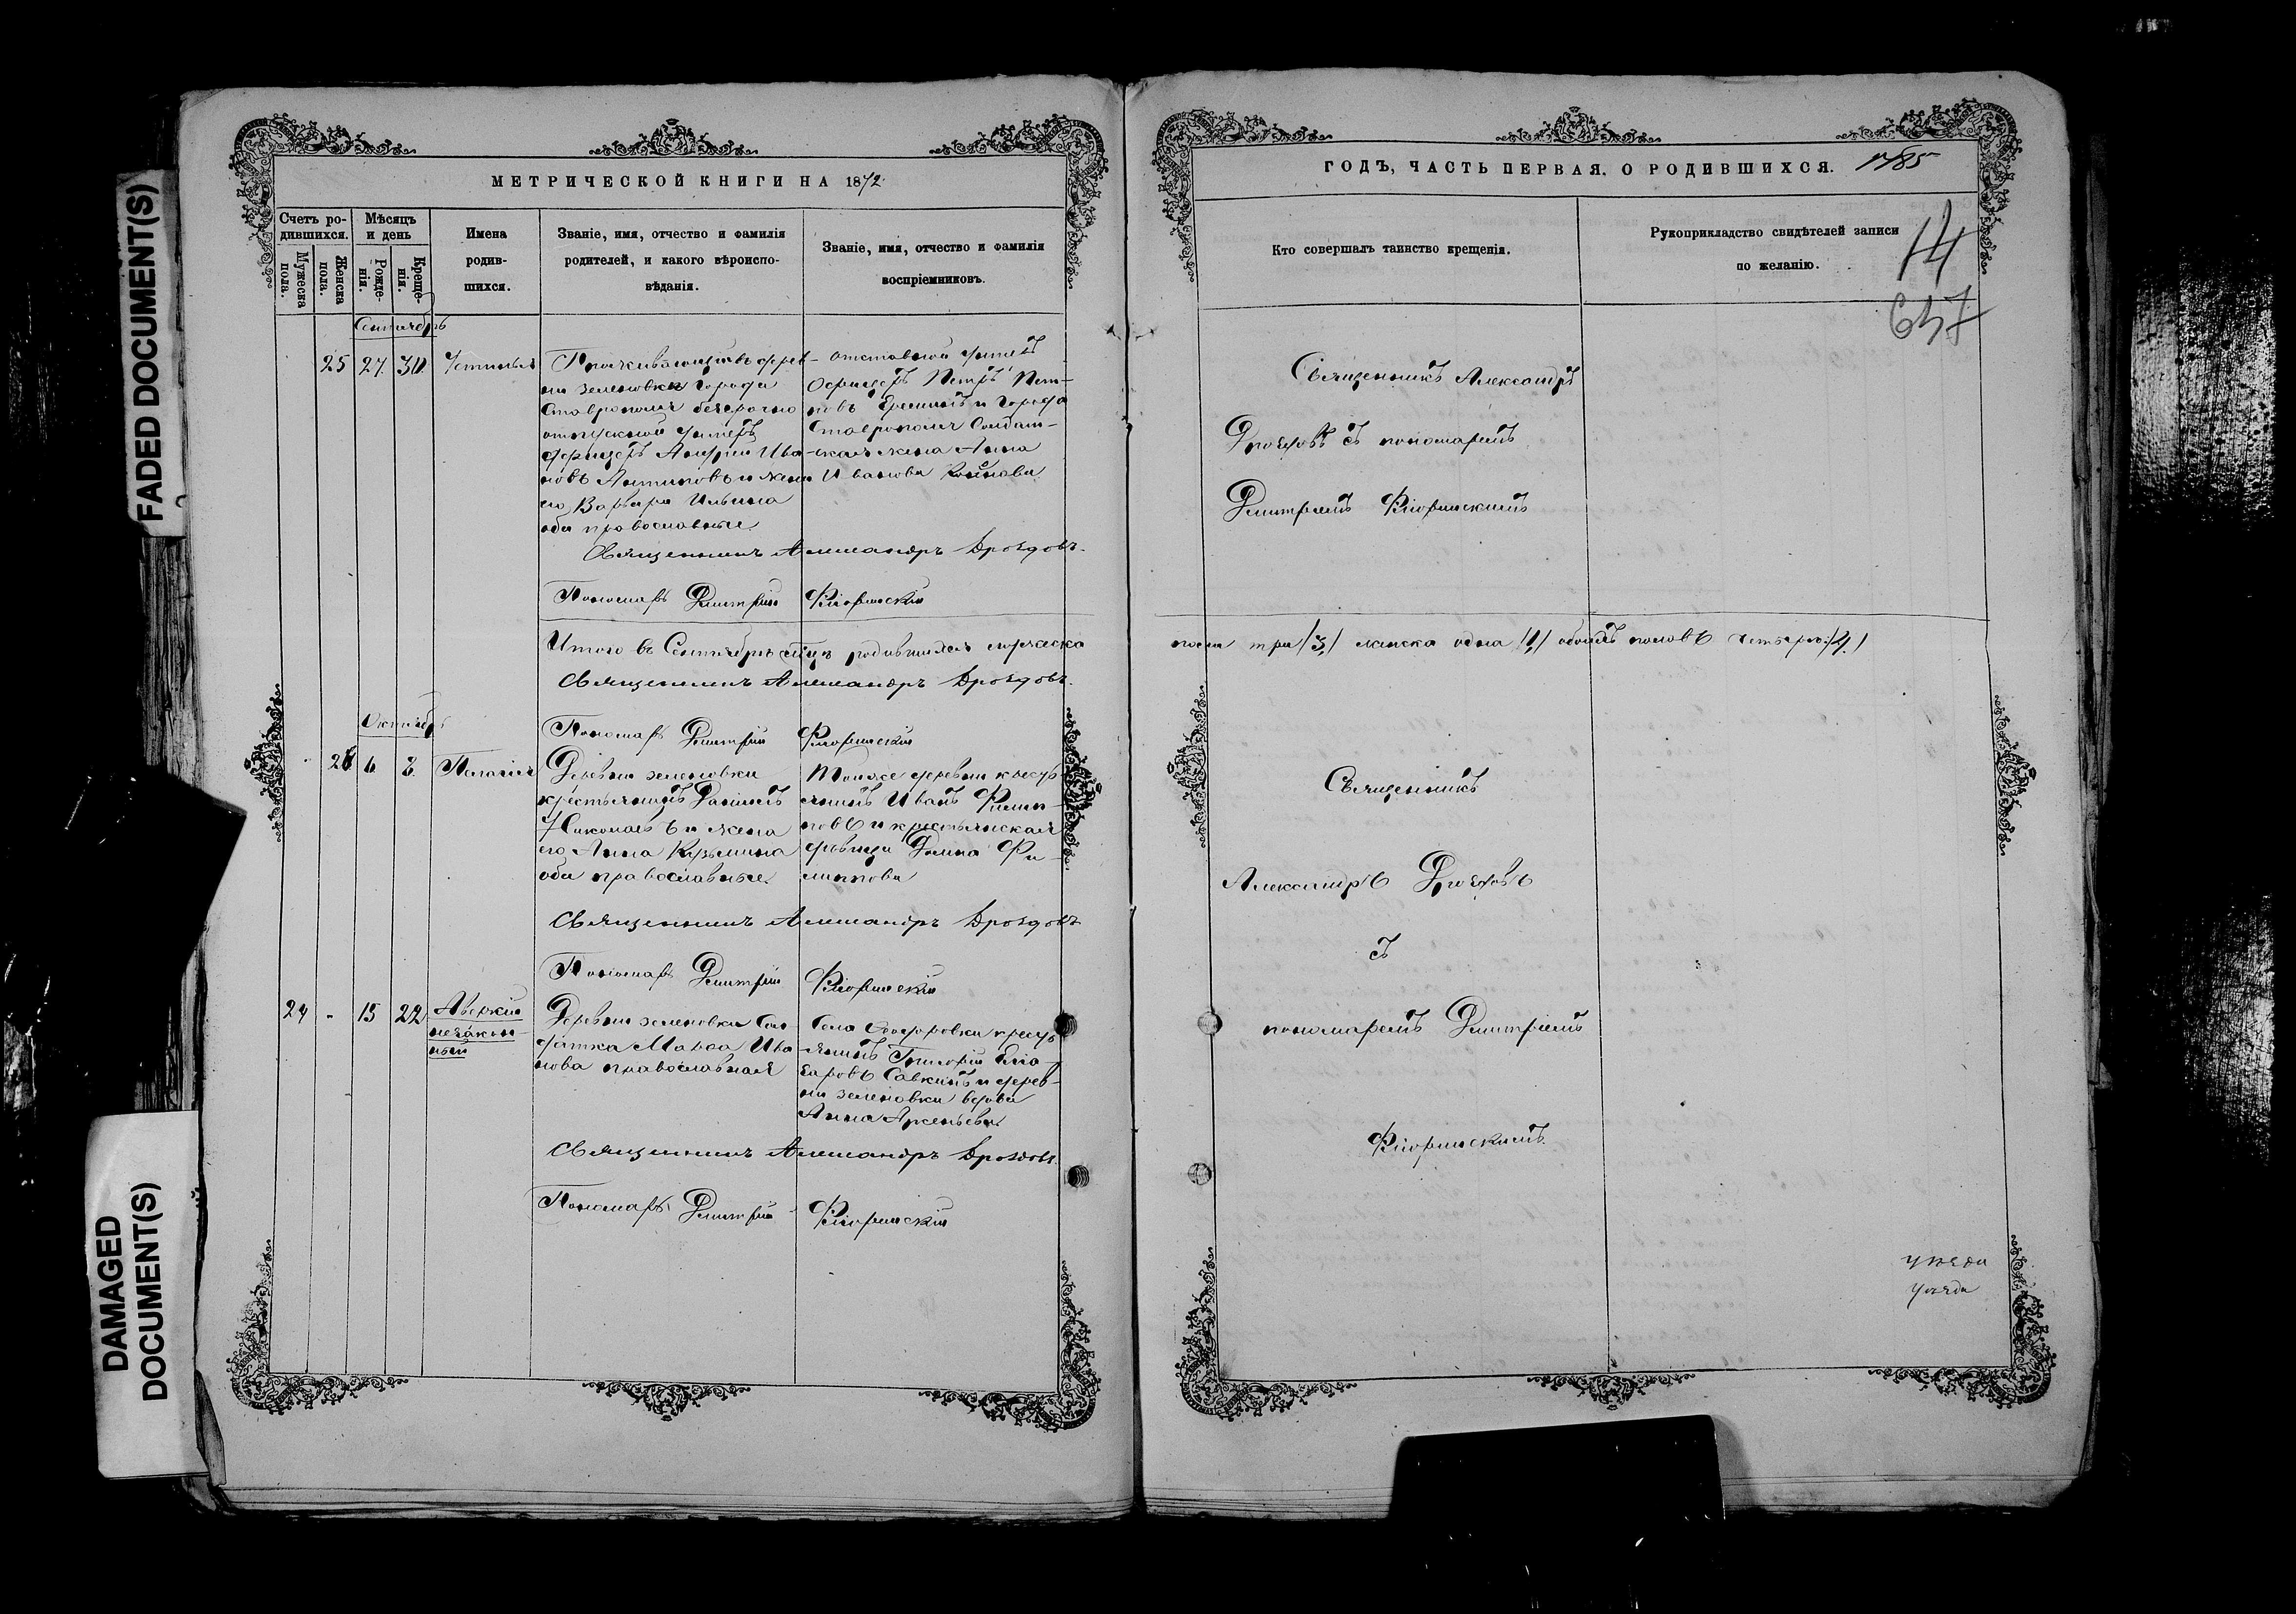 FADED DOCUMENT(S)
DAMAGED
DOCUMENT(S)
МЕТРИЧЕСКОЙ КНИГИ НА 1872
Счетъ ро-
дившихся.
Мужеска
пола.
Женска
пола.
Мѣсяцъ
и день
Рожде-
нія.
Креще-
нія.
Имена
родив-
шихся.
Званіе, имя, отчество и фамилія
родителей, и какого вѣроиспо-
вѣданія.
Званіе, имя, отчество и фамилія
воспріемниковъ.
Сентябрь
25 27 30 Устинья
Проживающій въ дерев-
ни Зеленовки города
Ставрополя безсрочно
отпускной унтеръ
офицеръ Андрей Ива-
новъ Антиповъ и жена
его Варвара Ильина
оба православные
отставной унтеръ
офицеръ Петръ Пет-
ровъ и города
Ставрополя Солдат-
ская жена Анна
Иванова
Священникъ Александръ Дроздовъ.
Пономарь Димитрій Флоринскій
Итого въ Сентябрѣ мѣсяцѣ родившихся мужеска
Священникъ Александръ Дроздовъ.
Октябрь
Пономарь Димитрій Флоринскій
26 6 8 Пелагія
Деревни Зеленовки
крестьянинъ Данiилъ
Николаевъ и жена
его Анна Кузьмина
оба православные.
Тойже деревни кресть-
янинъ Иванъ Филип-
повъ и крестьянская
дѣвица Домна Фи-
липпова
Священникъ Александръ Дроздовъ
Пономарь Димитрій Флоринскій
24 - 15 22 Аверкій
незакон-
ный
Деревни Зеленовки Сол-
датка Марѳа Ива-
нова православная
Села Ѳедоровки кресть-
янинъ Григорій Елеа-
заровъ Савкинъ и дерев-
ни Зеленовки вдова
Анна Арсеньева
Священникъ Александръ Дроздовъ.
Пономарь Димитрій Флоринскій
ГОДЪ, ЧАСТЬ ПЕРВАЯ, О РОДИВШИХСЯ.
Кто совершалъ таинство крещенія.
Рукоприкладство свидѣтелей записи
по желанію.
14
637
Священникъ Александръ
Дроздовъ съ пономаремъ
Димитріемъ Флоринскимъ
пола три /3/ женска одна /1/ обоихъ половъ четверо /4/
Священникъ
Александръ Дроздовъ
съ
пономаремъ Димитріемъ
Флоринскимъ.